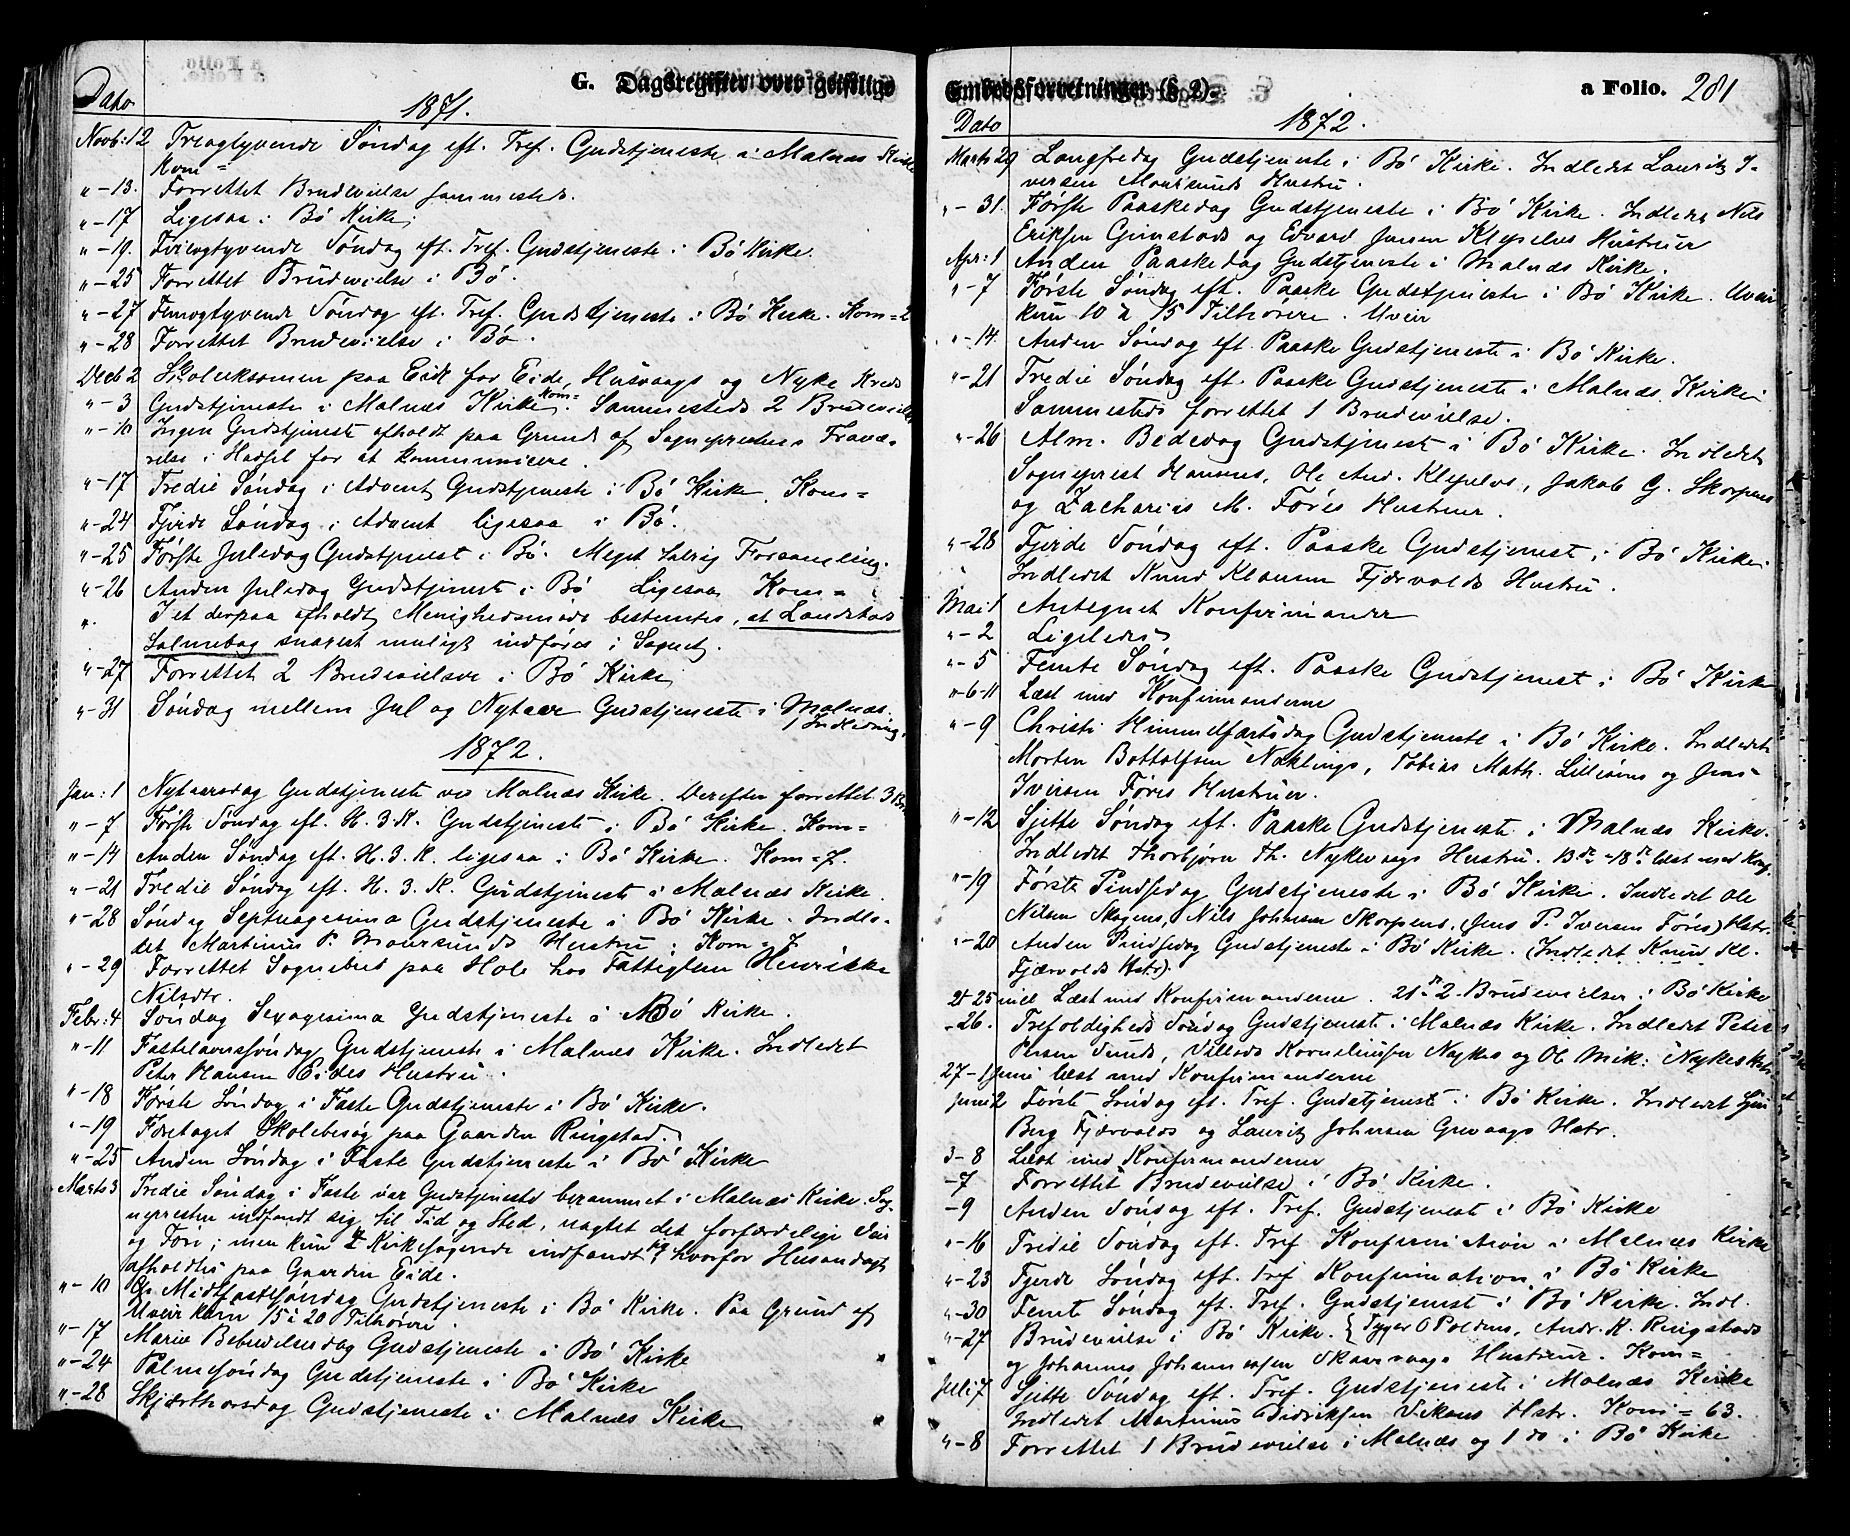 G. Dagsregister over geistlige
Dato
1871.
Novb: 12 Treogtyvende Søndag eft. Tref. Gudstjeneste i Malnæs Kirke
Kom=
"-13. Forrettet Brudevielse sammesteds.
"-17 Ligesaa i Bø Kirke;
"-19. Fireogtyvende Søndag eft. Tref. Gudstjeneste i Bø Kirke.
"-25 Forrettet Brudevielse i Bø.
"-27 Femogtyvende Søndag eft. Tref. Gudstjeneste i Bø Kirke. Kom=2
"-28 Forrettet Brudevielse i Bø.
Decb 2 Skoleeksamen paa Eide for Eide, Husvaags og Nyke Kreds
"-3 Gudstjeneste i Malnæs Kirke Kom=. Sammesteds 2 Brudevielser
"-10 Ingen Gudstjeneste afholdt paa Grund af Sogneprestens Fravæ-
relse i Hadsel for at kommunicere.
"-17 Tredie Søndag i Advent Gudstjeneste i Bø Kirke. Kom=
"-24 Fjerde Søndag i Advent ligesaa i Bø.
"-25 Første Juledag Gudstjenest i Bø. Meget talrig Forsamling.
"-26 Anden Juledag Gudstjenest i Bø Ligesaa Kom=
". I et derpaa afholdt Menighedsmøde bestemtes, at Landstads
Salmebog snarest muligt indføres i Sognet.
"-27 Forrettet 2 Brudevielser i Bø Kirke
"-31 Søndag mellem Jul og Nytaar Gudstjeneste i Malnæs.
1 Indledning.
1872.
Jan: 1 Nytaarsdag Gudstjeneste ved Malnæs Kirke. Derefter forrettet 3 Br.
"-7 Første Søndag eft. H. 3. K. Gudstjeneste i Bø Kirke. Kom=
"-14 Anden Søndag eft. H. 3. K. ligesaa i Bø Kirke. Kom=7.
"-21 Tredie Søndag eft. H. 3. K. Gudstjenest i Malnæs Kirke
"-28 Søndag Septuagesima Gudstjeneste i Bø Kirke. Indle-
det Martinus P. Moursunds Hustru; Kom=7
"-29 Forrettet Sognebud paa Hole hos Fattiglem Henrikke
Nilsdtr.
Febr: 4 Søndag Sexagesima Gudstjeneste i Bø Kirke.
"-11 Fastelavnssøndag Gudstjeneste i Malnæs Kirke. Indledet
Peter Hansen Eides Hustru.
"-18 Første Søndag i Faste Gudstjeneste i Bø Kirke.
"-19 Foretaget Skolebesøg paa Gaarden Ringstad.
"-25 Anden Søndag i Faste Gudstjeneste i Bø Kirke
Marts 3 Tredie Søndag i Faste var Gudstjeneste berammet i Malnæs Kirke. Sog-
nepresten indfandt sig til Tid og Sted, uagtet det forfærdelige Veir
og Føre; men kun 4 Kirkesøgende indfandt sig hvorfor Husandagt
afholdtes paa Gaarden Eide.
"-10 Midtfastesøndag Gudstjeneste i Bø Kirke. Paa Grund af
Uveir kun 15 à 20 Tilhørere.
"-17 Mariæ Bebudelsesdag Gudstjeneste i Bø Kirke
"-24 Palmesøndag Gudstjeneste i Bø Kirke
"-28 Skjærthorsdag Gudstjeneste i Malnæs Kirke
Embedsforretninger (§ 2).
a Folio. 281
Dato
1872.
Marts 29 Langfredag Gudstjeneste i Bø Kirke. Indledet Lauritz I-
versen Moursunds Hustru.
"-31. Første Paaskedag Gudstjeneste i Bø Kirke. Indledet Nils
Eriksen Grimstads og Edvard Jensen Klepelvs Hustruer
Apr: 1 Anden Paaskedag Gudstjeneste i Malnæs Kirke.
"-7 Første Søndag eft. Paaske Gudstjeneste i Bø Kirke. Uveir
kun 10 à 15 Tilhørere. Uveir
"-14. Anden Søndag eft. Paaske Gudstjeneste i Bø Kirke.
"-21 Tredie Søndag eft. Paaske Gudstjeneste i Malnæs Kirke
Sammesteds forrettet 1 Brudevielse.
"-26 Alm. Bededag Gudstjenest i Bø Kirke. Indledet
Sogneprest Hansens, Ole And. Klepelvs, Jakob G. Skorpens
og Zacharias M. Føres Hustruer.
"-28 Fjerde Søndag eft. Paaske Gudstjenest i Bø Kirke.
Indledet Knud Klausen Fjærvolds Hustru.
Mai: 1 Antegnet Konfirmander
"-2 Ligeledes
"-5 Femte Søndag eft. Paaske Gudstjenest i Bø Kirke
"-6-11 Læst med Konfirmanderne
"-9 Christi Himmelfartsdag Gudstjeneste i Bø Kirke. Indledet
Morten Bottolfsen Nøklings, Tobias Math. Lilleøens og Jens
Iversen Føres Hustruer.
"-12 Sjette Søndag eft. Paaske Gudstjeneste i Malnæs Kirke.
Indledet Thorbjørn Th. Nykvaags Hustru. 13de-18de læst med Konf.
"-19 Første Pindsedag Gudstjeneste i Bø Kirke. Indledet Ole
Nilsen Skogens, Nils Johnsen Skorpens, (Jens P. Iversen Føres) Hstr.
"-20 Anden Pindsedag Gudstjeneste i Bø Kirke. (Indledet Knud Kl.
Fjærvolds Hstr).
21-25 Læst med Konfirmanderne. 21de 2 Brudevielser i Bø Kirke
-26. Trefoldigheds Søndag Gudstjenest i Malnæs Kirke. Indledet Peter
Sunds, Villads Korneliussen Nykes og Ol. Mik. Nykes Hstr.
27-1 Juni læst med Konfirmanderne
Juni 2 Første Søndag eft. Tref. Gudstjenest i Bø Kirke. Indledet
Berg Fjærvolds og Lauritz Johnsen Guvaags Hstr.
3-8 Læst med Konfirmanderne
-7 Forrettet Brudevielse i Bø Kirke.
-9 Anden Søndag eft. Tref. Gudstjenest i Bø Kirke
"-16 Tredie Søndag eft. Tref Konfirmation i Malnæs Kirke
"-23 Fjerde Søndag eft. Tref Konfirmation i Bø Kirke
"-30 Femt Søndag eft. Tref. Gudstjenest i Bø Kirke. Indl.
"-27 Brudevielse i Bø Kirke. { Tyger O Poldens, Andr. K. Ringstads
og Johannes Johannesen Skaarvaags Hustruer. Kom=
Juli 7 Sjette Søndag eft. Tref. Gudstjeneste i Malnæs Kirke
Indledet Martinus Didriksen Vikans Hstr. Kom=63.
"-8 Forrettet 1 Brudevielse i Malnæs og 1 do i Bø Kirke